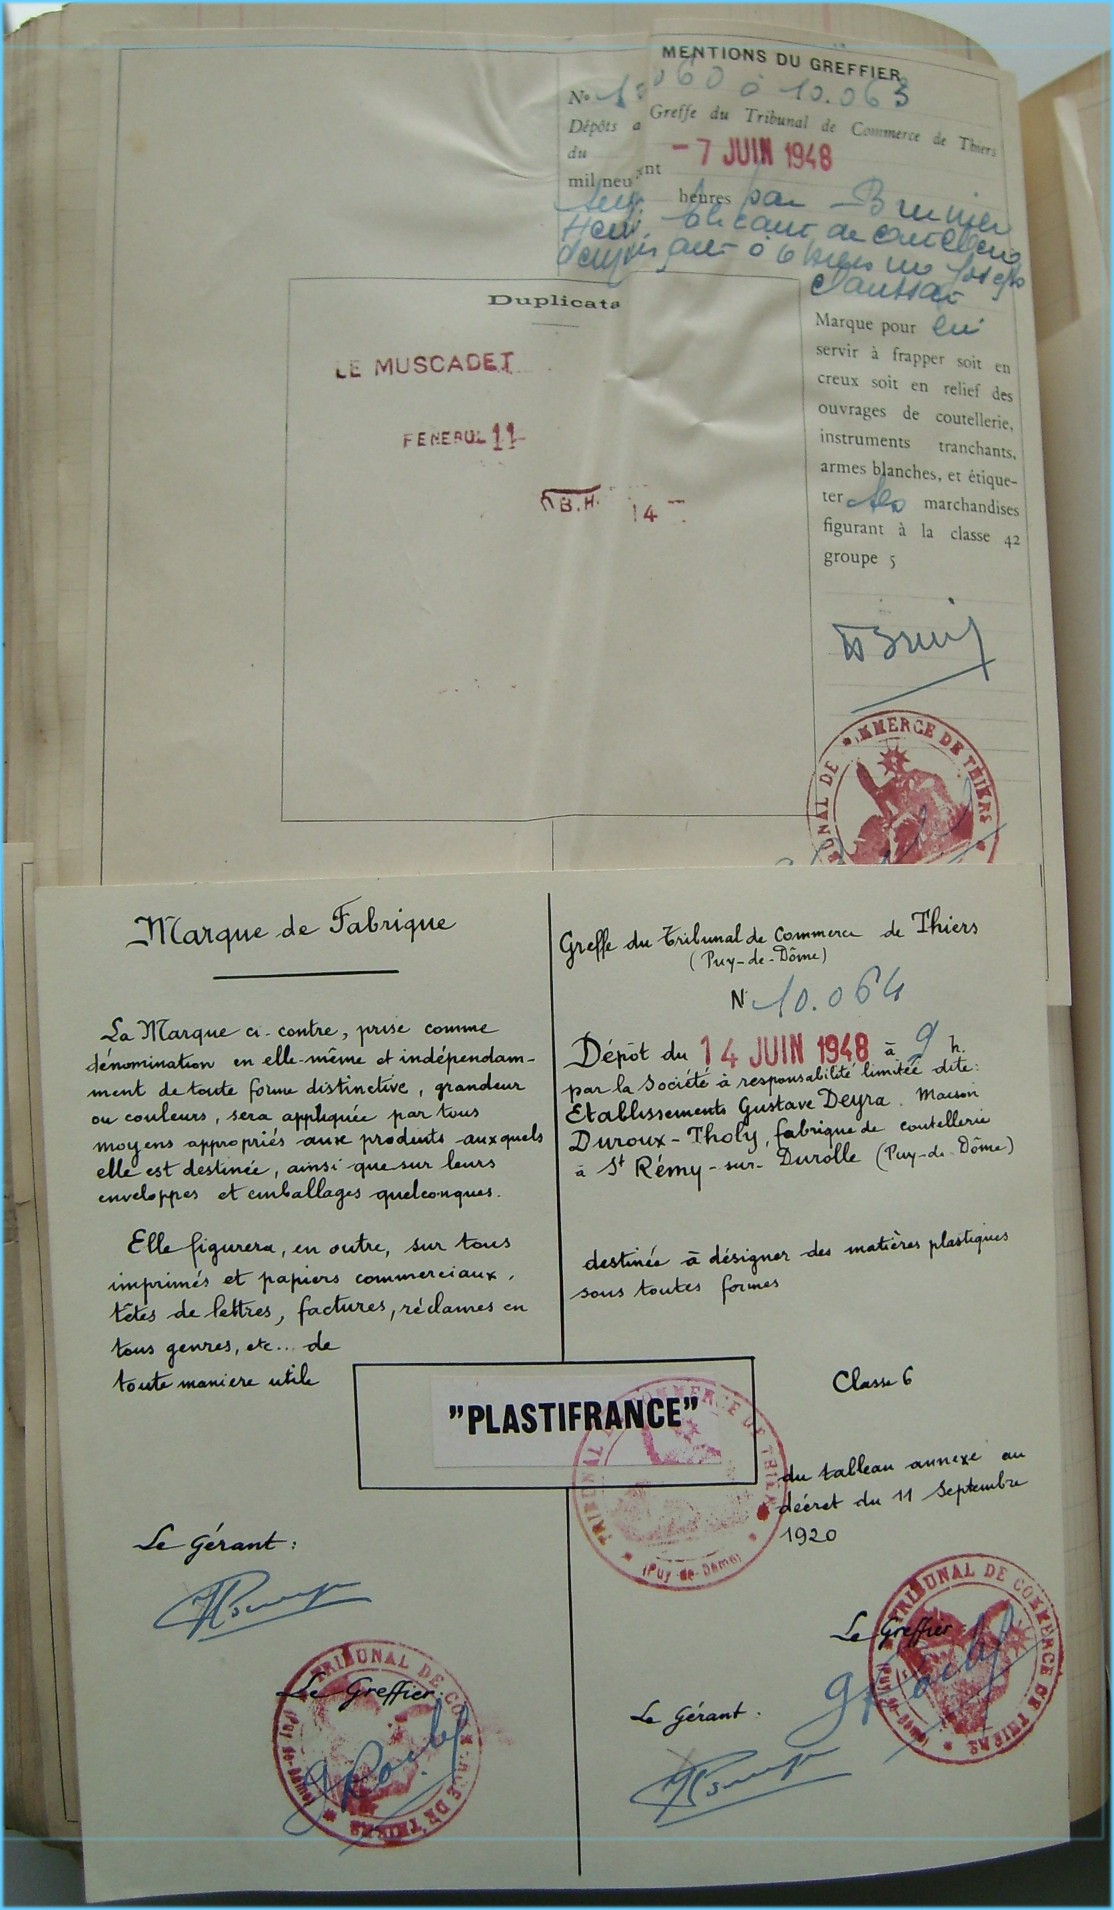 MENTIONS DU GREFFIER
No
060 à 10.063
Dépôts a
Greffe du Tribunal de Commerce de Thiers
du
- 7 JUIN 1948
mil neu
heures par Brunier
fabricant de coutellerie
demeurant à Thiers
Marque pour lui
servir à frapper soit en
creux soit en relief des
ouvrages de coutellerie,
instruments tranchants,
armes blanches, et étique-
ter les marchandises
figurant à la classe 42
groupe 5
Duplicata
LE MUSCADET
FENEROL 11
B.H. 14
TRIBUNAL DE COMMERCE DE THIERS
Marque de Fabrique
La Marque ci-contre, prise comme
dénomination en elle-même et indépendam-
ment de toute forme distinctive, grandeur
ou couleurs, sera appliquée par tous
moyens appropriés aux produits auxquels
elle est destinée, ainsi que sur leurs
enveloppes et emballages quelconques.
Elle figurera, en outre, sur tous
imprimés et papiers commerciaux,
têtes de lettres, factures, réclames en
tous genres, etc... de
toute maniere utile
Greffe du Tribunal de Commerce de Thiers
(Puy-de-Dôme)
N 10.064
Dépôt du 14 JUIN 1948 à 9 h.
par la Société à responsabilité limitée dite:
Etablissements Gustave Deyra. Maison
Duroux-Tholy, fabrique de coutellerie
à St Rémy-sur-Durolle (Puy-de-Dôme)
destinée à désigner des matières plastiques
sous toutes formes
Classe 6
"PLASTIFRANCE"
TRIBUNAL DE COMMERCE DE THIERS
(Puy-de-Dôme)
du tableau annexe au
décret du 11 Septembre
1920
Le Gérant :
Le Greffier.
TRIBUNAL DE COMMERCE DE THIERS
(Puy-de-Dôme)
Le Greffier
TRIBUNAL DE COMMERCE DE THIERS
(Puy-de-Dôme)
Le Gérant :